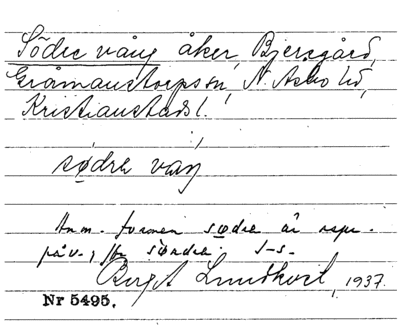 Södre vång åker, Bjersgård,
Gråmanstorps sn, N. Åsbo hd,
Kristianstads l.
sødrə våŋ
Anm. formen sødrə är rspr.-
påv., jfr söndre. S-s.
Birgit Lundkvist, 1937.
Nr 5495.